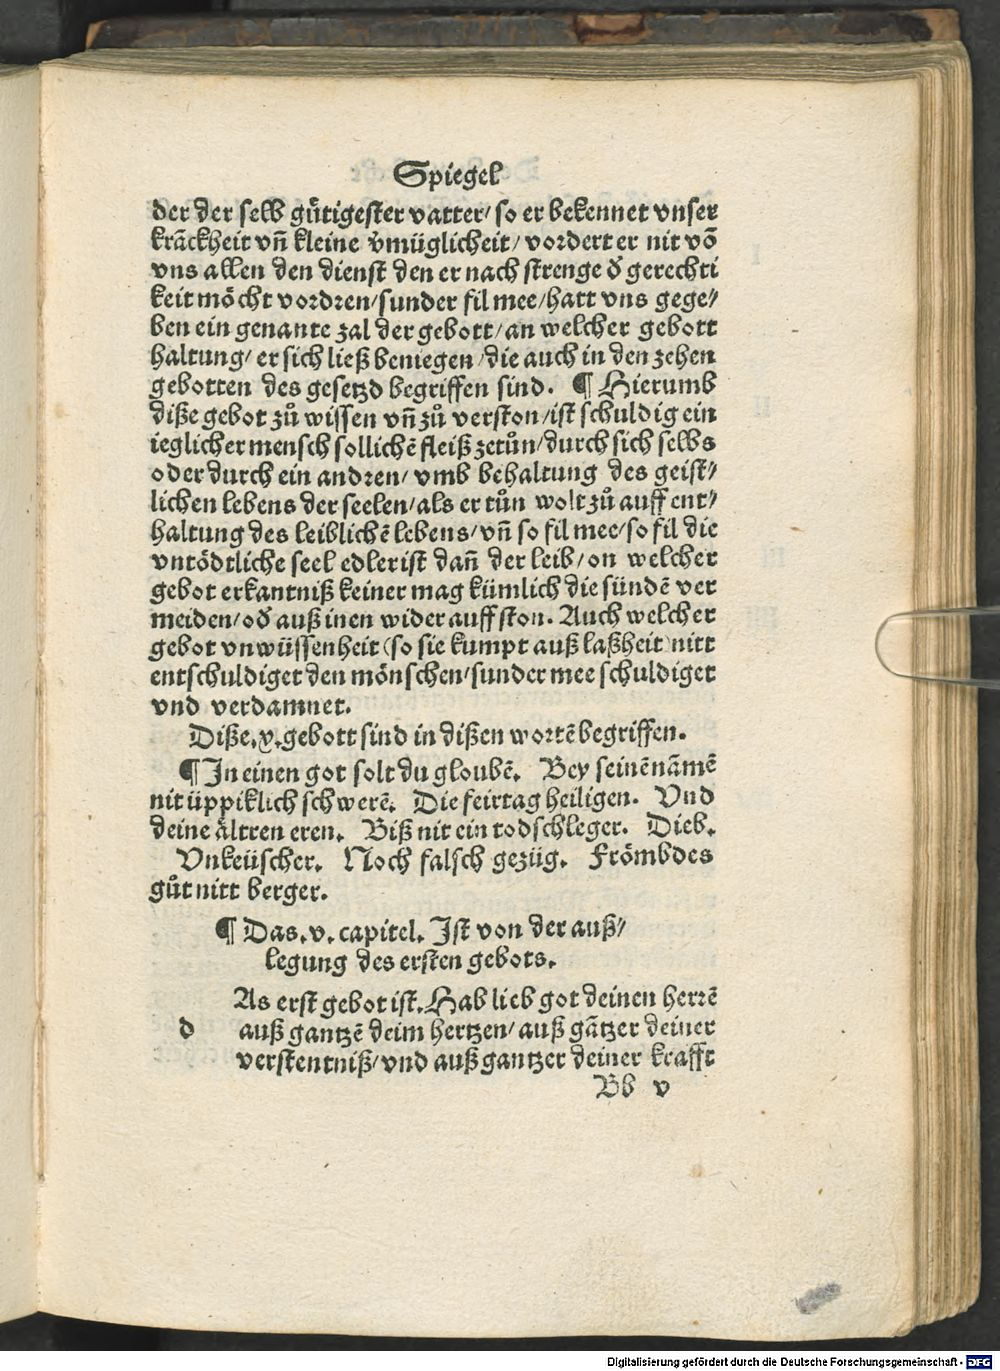 Spiegel
der der selb gůtigester vatter/ so er bekennet vnser
krãckheit vñ kleine v̓müglicheit/ vordert er nit võ
vns allen den dienst den er nach strenge d̓ gerechti
keit möcht vordren/sunder fil mee/hatt vns gege/
ben ein genante zal der gebott/an welcher gebott
haltung/ er sich ließ beniegen/die auch in den zehen
gebotten des gesetzd begriffen sind. ¶ Hierumb
diße gebot zů wissen vñ zů verston/ist schuldig ein
ieglicher mensch sollichẽ fleiß zetůn/durch sich selbs
oder durch ein andren/ vmb behaltung des geist/
lichen lebens der seelen/als er tůn wolt zů auffent/
haltung des leiblichẽ lebens/vñ so fil mee/so fil die
vntödtliche seel edler ist dañ der leib/on welcher
gebot erkantniß keiner mag kümlich die sündẽ ver
meiden/od̓ auß inen wider auffston. Auch welcher
gebot vnwüssenheit (so sie kumpt auß laßheit) nitt
entschuldiget den mönschen/sunder mee schuldiget
vnd verdamnet.
Diße.x.gebott sind in dißen wortẽ begriffen.
¶ In einen got solt du gloubẽ. Bey seinẽ nãmẽ
nit üppiklich schwerẽ. Die feirtag heiligen. Vnd
deine åltren eren. Biß nit ein todschleger. Dieb.
Vnkeüscher. Noch falsch gezüg. Frömbdes
gůt nitt berger.
¶ Das.v.capitel. Ist von der auß/
legung des ersten gebots.
As erst gebot ist.Hab lieb got deinen herrẽ
d auß gantzẽ deim hertzen/auß gãtzer deiner
verstentniß/vnd auß gantzer deiner krafft
Bb v
Digitalisierung gefördert durch die Deutsche Forschungsgemeinschaft - DFG